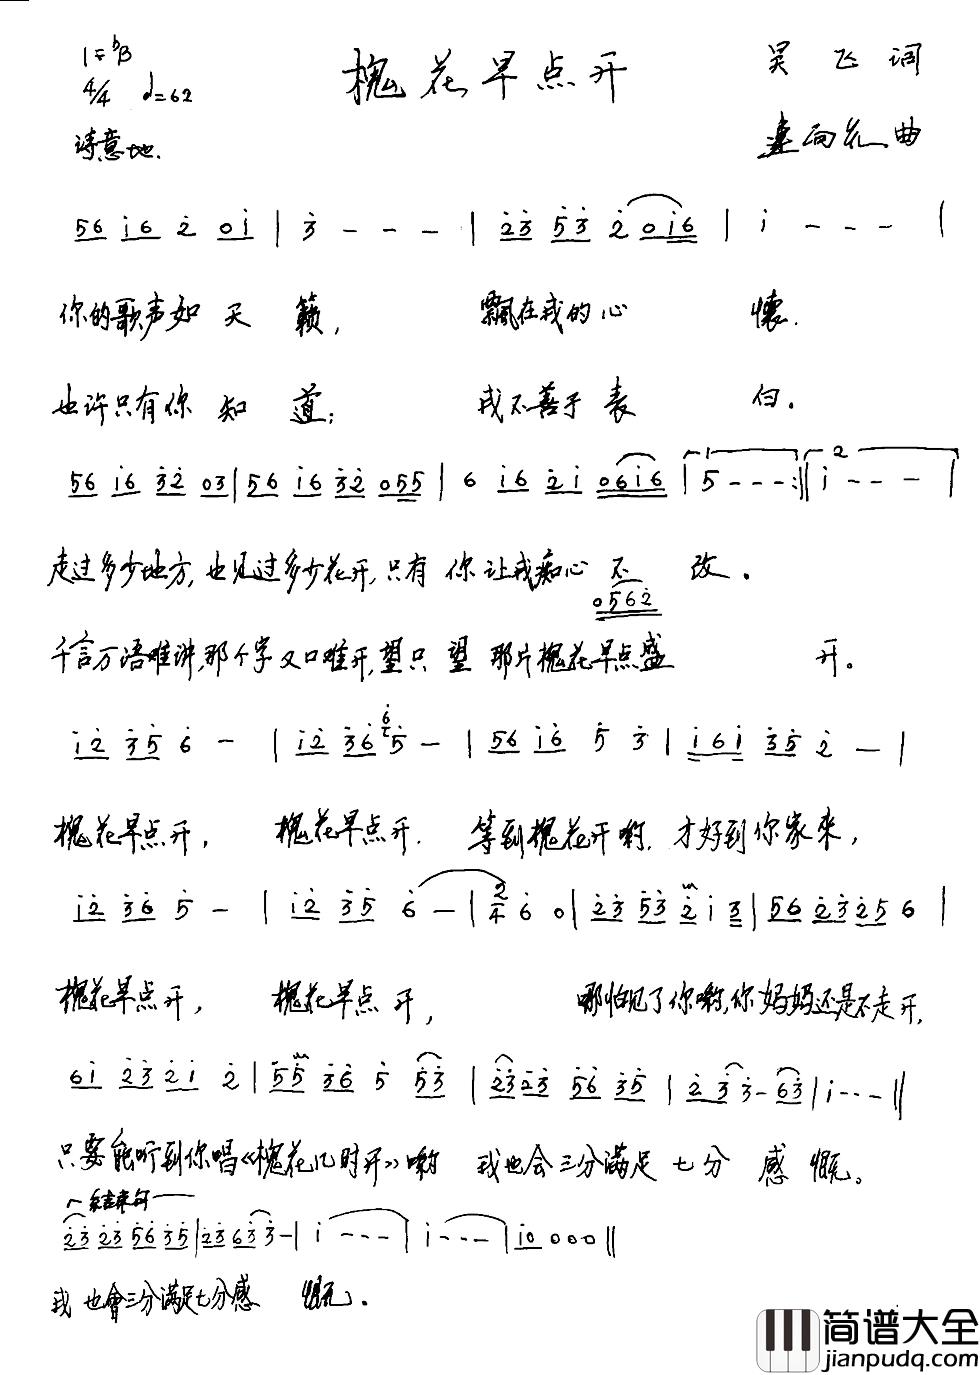 1=ᵇB
槐花早点开
吴飞词
4/4 ♩=62
诗意地.
向花曲
56 i6 2 0i | 3 - - - | 23 53 2 0i6 | i - - - |
你的歌声如天籁, 飘在我的心怀.
也许只有你知道; 我不善于表白.
56 i6 32 03 | 56 i6 32 055 | 6 i6 2i 06i6 | 1 5 - - - :|| 2 i - - - |
走过多少地方,也见过多少花开,只有你让我痴心不改.
0562
千言万语难讲,那个字又口难开,望只望那片槐花早点盛开。
i2 35 6 - | i2 36 6 5 - | 56 i6 5 3 | i6i 35 2 - |
槐花早点开, 槐花早点开. 等到槐花开哟.才好到你家来,
i2 36 5 - | i2 35 6 - | 2/4 6 0 | 23 53 2 i 3 | 56 23 25 6 |
槐花早点开, 槐花早点开, 哪怕见了你哟,你妈妈还是不走开,
6i 23 2i 2 | 55 36 5 53 | 23 23 56 35 | 2 3 3 - 63 | i - - - ||
只要能听到你唱《槐花几时开》哟 我也会三分满足七分感慨。
结束句
23 23 56 35 | 23 63 3 - | i - - - | i - - - | i0 0 0 0 ||
我也會三分满足七分感慨.
简谱大全
jianpudq.com